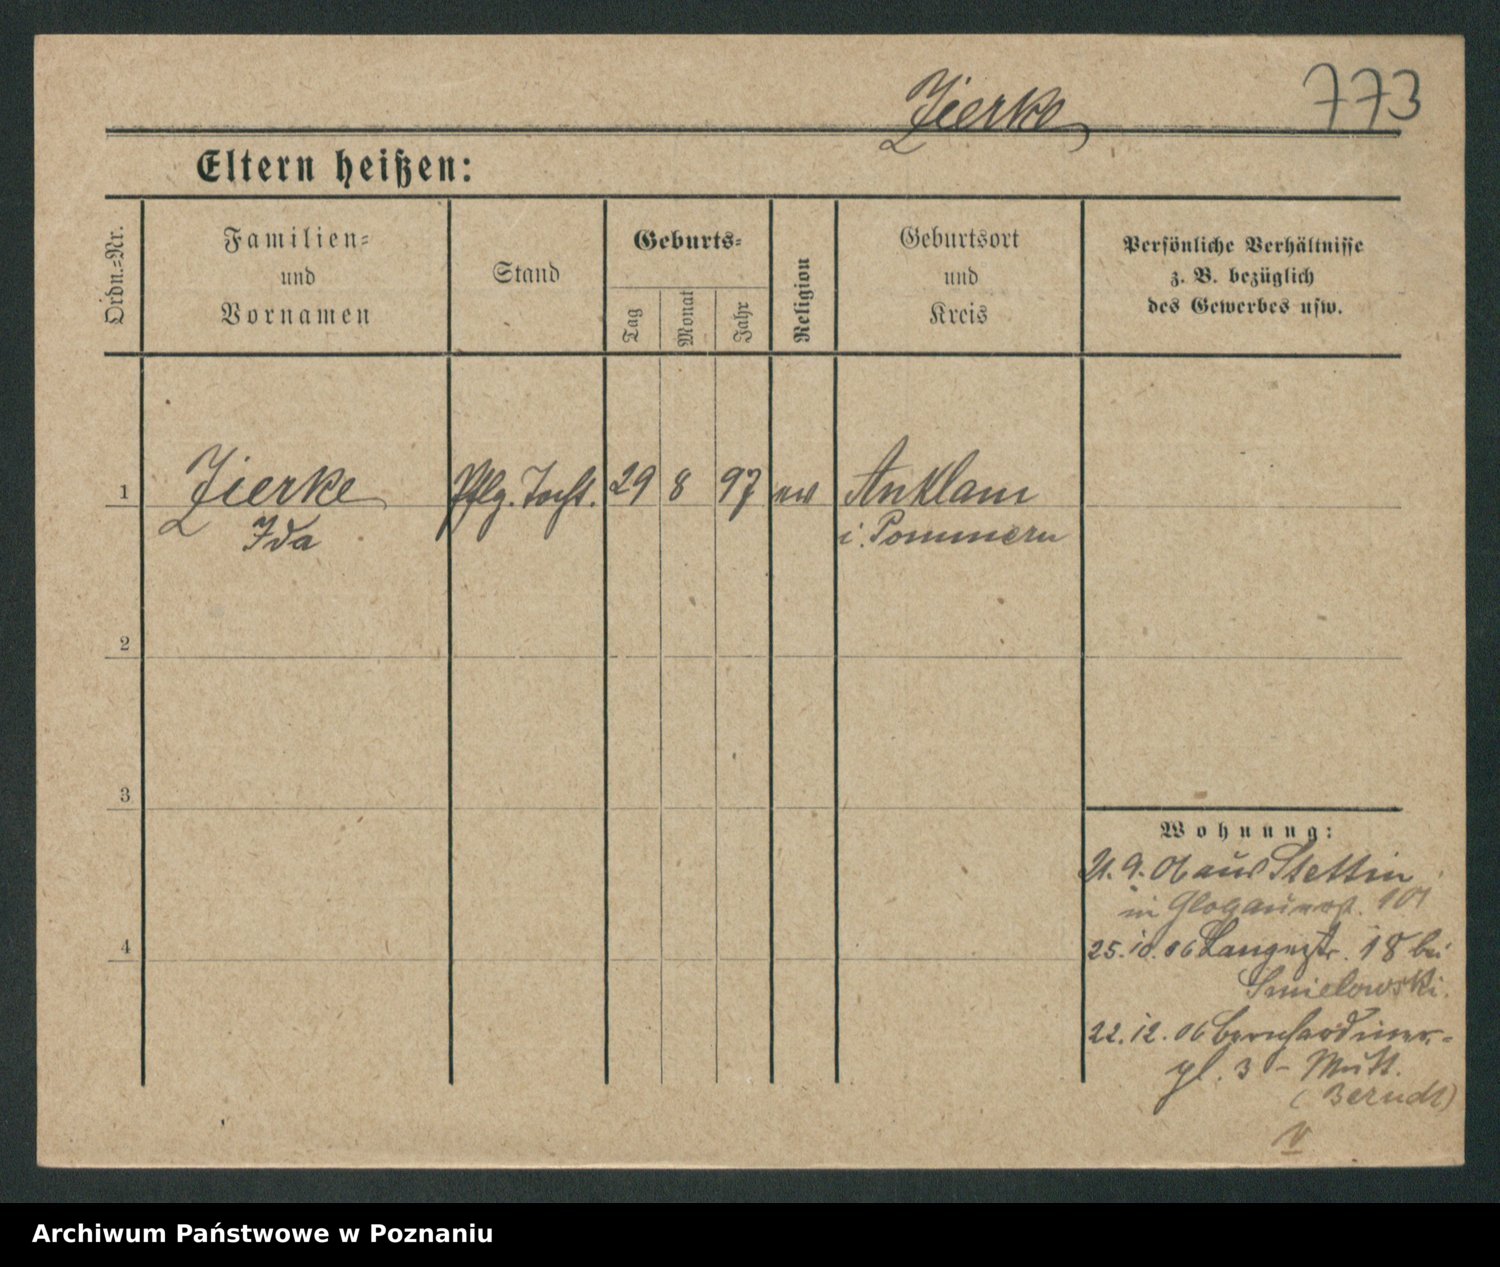 Zierke
773
Eltern heißen:
Ordn.-Nr.
Familien-
und
Vornamen
Stand
Geburts-
Tag
Monat
Jahr
Religion
Geburtsort
und
Kreis
Persönliche Verhältnisse
z. B. bezüglich
des Gewerbes usw.
1
Zierke
Ida
Pflg. Tocht.
29
8
97
ev
Anklam
i. Pommern
2
3
4
Wohnung:
21. 9. 06 aus Stettin
in Glogauerst. 101
25. 10. 06 Langestr. 18 bei
Smielowski.
22. 12. 06 Bernhardiner-
pl. 3 - Mutt.
(Berndt)
Archiwum Państwowe w Poznaniu